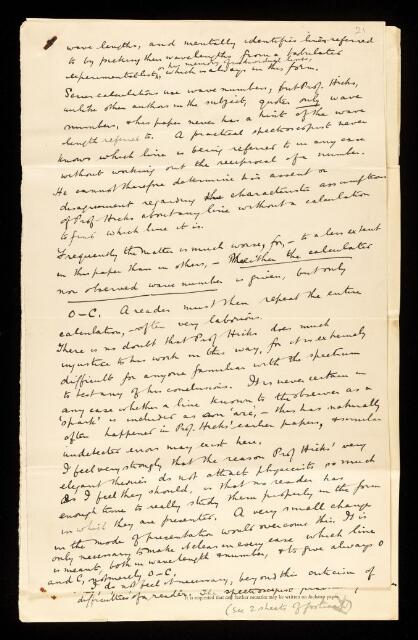 21
wave lengths, and mentally identifies lines referred
to by picking their wavelengths from a tabulated
or his memory, of individual lines,
experimental lists, which is always in this form.
Series calculations use wave numbers, but Prof. Hicks,
unlike other authors in the subject, quotes only wave
numbers, & his paper never has a hint of the wave
length referred to. A practical spectroscopist never
knows which line is being referred to in any case
without working out the reciprocal of a number.
He cannot therefore determine his assent or
disagreement regarding the characteristic assumptions
of Prof Hicks about any line without a calculation
to find which line it is.
Frequently the matter is much worse, for, – to a less extent
in this paper than in others, – neither the calculated
nor observed wave number is given, but only
O–C. A reader must then repeat the entire
calculation, – often very laborious.
There is no doubt that Prof Hicks does much
injustice to his work in this way, for it is extremely
difficult for anyone familiar with the spectrum
to test any of his conclusions. It is never certain in
any case whether a line known to the observer as a
'spark' is included as an 'arc', – this has naturally
often happened in Prof. Hicks' earlier papers, & similar
undetected errors may exist here.
I feel very strongly that the reason Prof Hicks' very
elegant theories do not attract physicists so much
as I feel they should, is that no reader has
enough time to really study them properly in the form
in which they are presented. A very small change
in the mode of presentation would overcome this. It is
only necessary to make it clear in every case which line
is meant, both in wavelength & number, & to give always O
and C, not merely O–C.
I do not feel it necessary, beyond this criticism of
difficulties of a reader, The spectroscopist
It is requested that any further remarks may be written on
(see 2 sheets of foolscap)